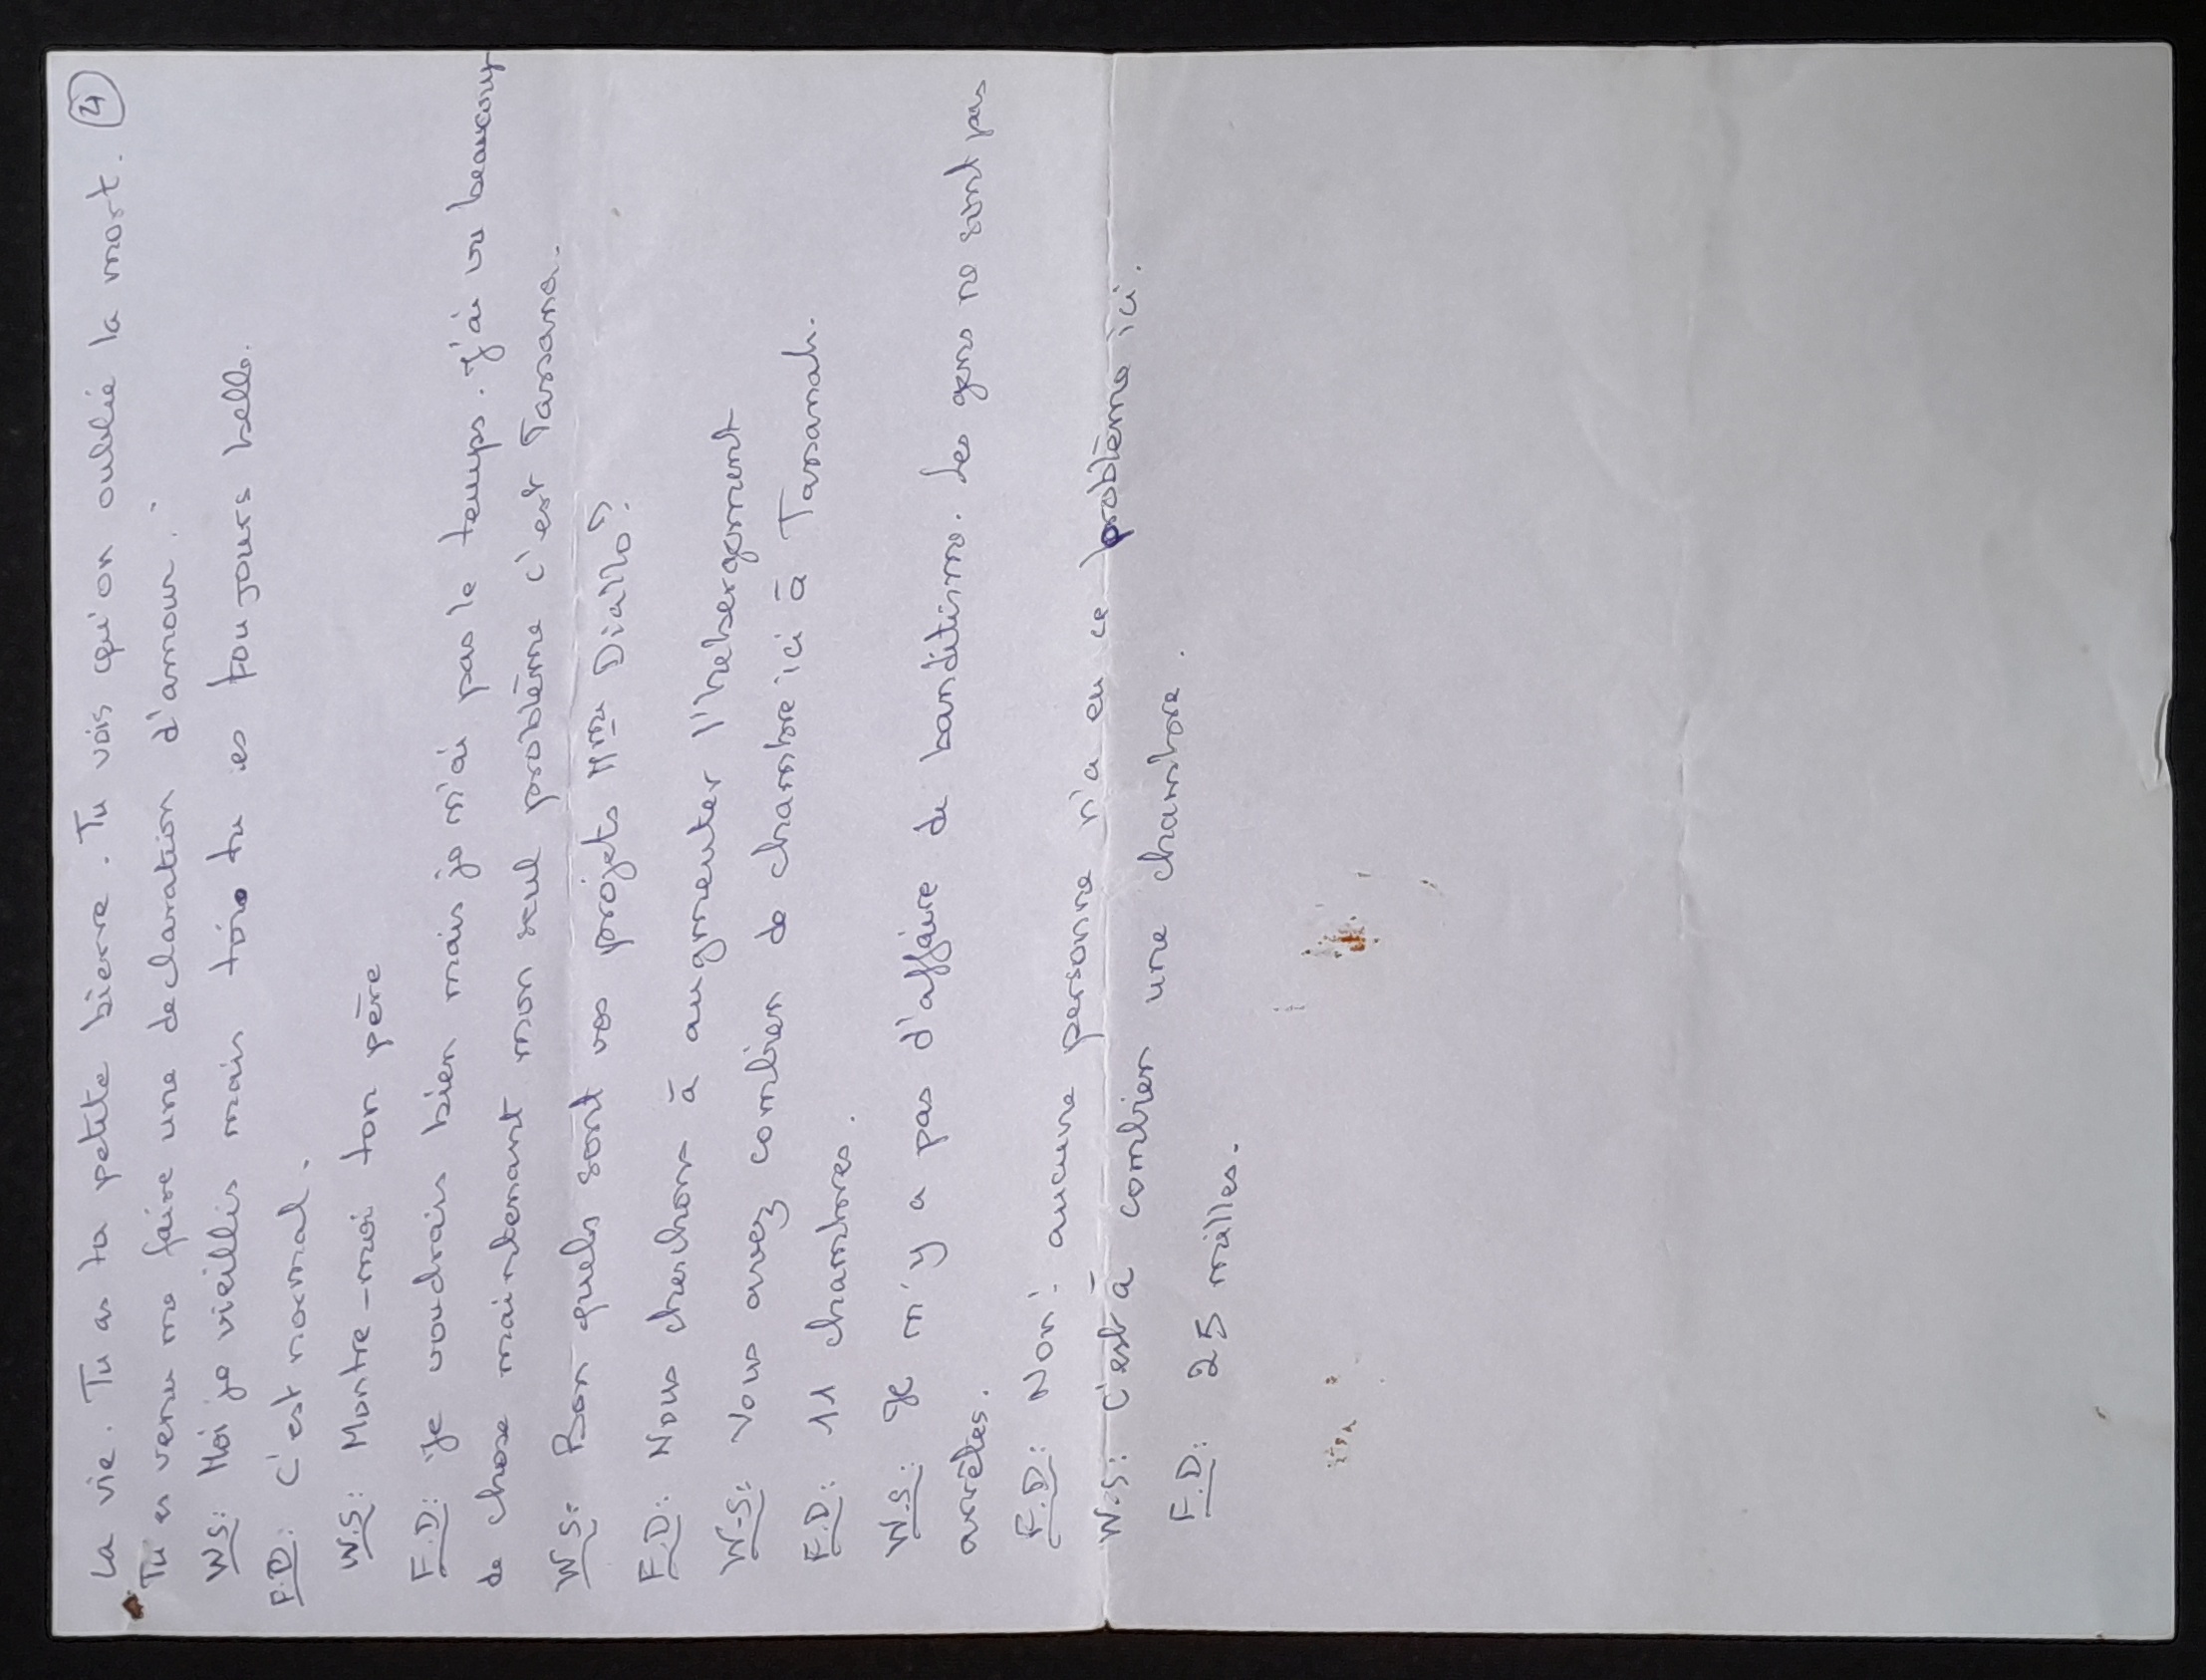 La vie. Tu as ta petite bierre. Tu vois qu'on oublie la mort. 4
Tu es venu me faire une declaration d'amour.
W.S: Moi je vieillis mais toi tu es toujours belle.
F.D: C'est normal.
W.S: Montre-moi ton père
F.D: Je voudrais bien mais je n'ai pas le temps. J'ai vu beaucoup
de chose maintenant mon seul problème c'est Tassana.
W.S: Bon quels sont vos projets Mme Diallo?
F.D: Nous cherchons à augmenter l'hebergement
W.S: Vous avez combien de chambre ici à Tassanah.
F.D: 11 chambres.
W.S: Je n'y a pas d'affaire de banditisme. Les gens ne sont pas
arrêtes.
F.D: Non: aucune personne n'a eu ce problème ici.
W.S: C'est à combien une chambre.
F.D: 25 milles.